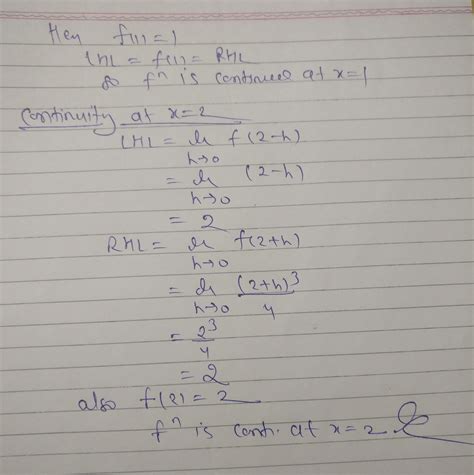 Hen f(1) = 1
LHL = f(1) = RHL
so fⁿ is continuous at x=1
Continuity at x=2
LHL = lt f(2-h)
h→0
= lt (2-h)
h→0
= 2
RHL = lt f(2+h)
h→0
= lt (2+h)³/4
h→0
= 2³/4
= 2
also f(2) = 2
fⁿ is conti. at x=2